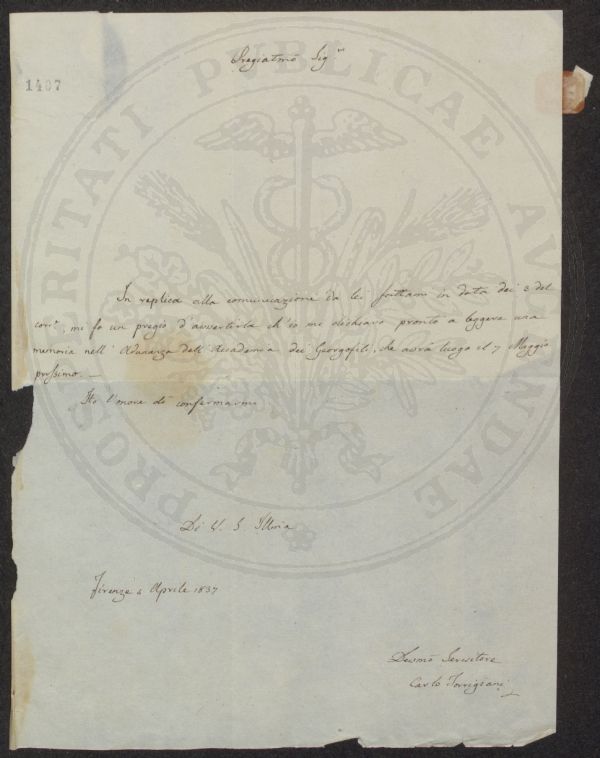 Pregiatmo Sigre
1407
PROSPERITATI PUBLICAE AUGENDAE
In replica alla comunicazione da lei fattami in data dei 3 del
corre, mi fo un pregio d'avvertirla ch'io mi dichiaro pronto a leggere una
memoria nell'Adunanza dell'Accademia dei Georgofili, che avrà luogo il 7 Maggio
prossimo. —
Ho l'onore di confermarmi
Di V. S. Illma
Firenze 4 Aprile 1837
Devmo Servitore
Carlo Torrigiani